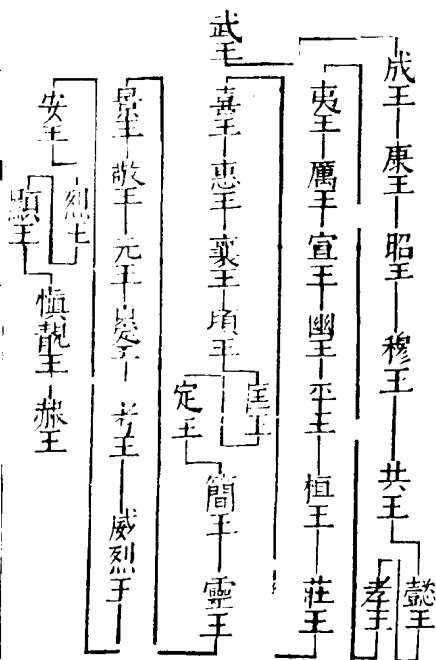 武王
成王 康王 昭王 穆王 共王
懿王
孝王
夷王 厲王 宣王 幽王 平王 桓王 莊王
喜王 惠王 襄王 頃王
匡王
定王
簡王 靈王
景王 敬王 元王 考王 威烈王
安王
烈王
顯王
慎靚王 赧王